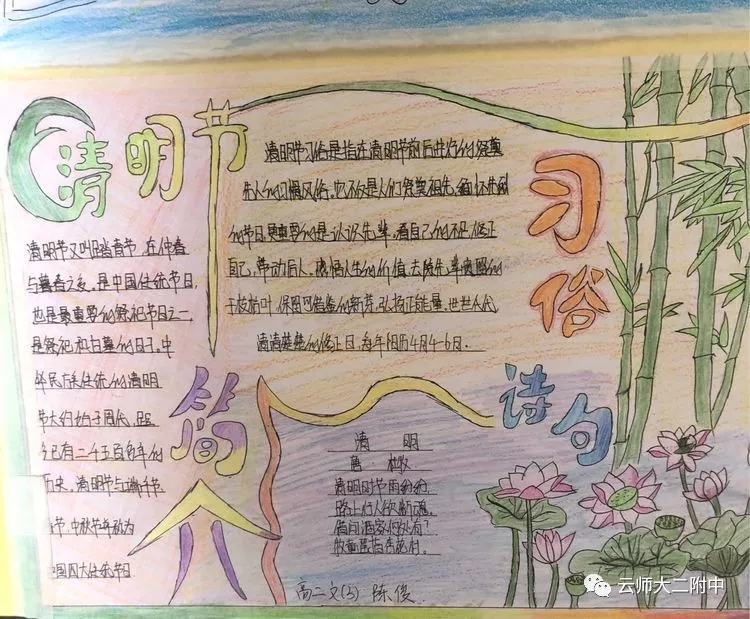 清明节
清明节又叫踏青节，在仲春
与暮春之交，是中国传统节日，
也是最重要的祭祀节日之一，
是祭祀和扫墓的日子。中
华民族传统的清明
节大约始于周代，距
今已有二千五百多年的
历史，清明节与端午节
节、中秋节并称为
中国四大传统节日
简介
清明节习俗是指在清明节前后进行的祭奠
先人的习惯风俗。它不仅是人们祭奠祖先、缅怀先烈
的节日，更重要的是认识先辈，看自己的不足，修正
自己，带动后人，感悟人生的价值，去除先辈
干枝枯叶，保留可借鉴的新芽，弘扬正能量，世世代代
清清楚楚的修正日，每年阳历4月4-6日。
习俗
诗句
清 明
唐 杜牧
清明时节雨纷纷，
路上行人欲断魂。
借问酒家何处有？
牧童遥指杏花村。
高二文(3) 陈俊
云师大二附中